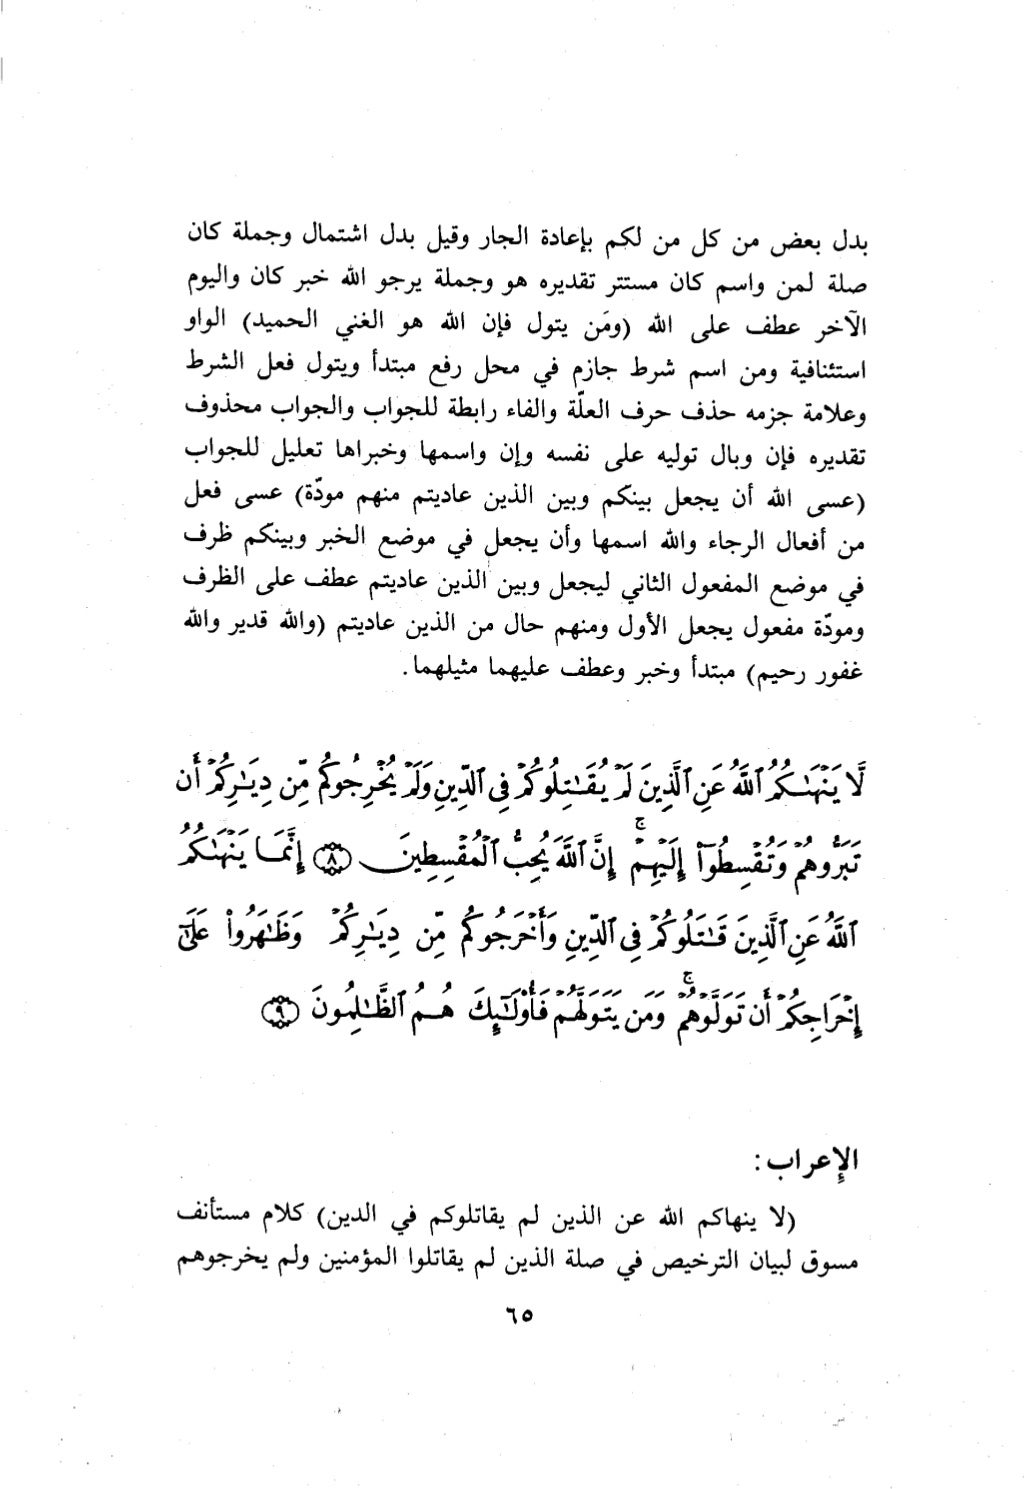 بدل بعض من كل من لكم بإعادة الجار وقيل بدل اشتمال وجملة كان
صلة لمن واسم كان مستتر تقديره هو وجملة يرجو الله خبر كان واليوم
الآخر عطف على الله (ومَن يتول فإن الله هو الغني الحميد) الواو
استئنافية ومن اسم شرط جازم في محل رفع مبتدأ ويتول فعل الشرط
وعلامة جزمه حذف حرف العلّة والفاء رابطة للجواب والجواب محذوف
تقديره فإن وبال توليه على نفسه وإن واسمها وخبراها تعليل للجواب
(عسى الله أن يجعل بينكم وبين الذين عاديتم منهم مودّة) عسى فعل
من أفعال الرجاء والله اسمها وأن يجعل في موضع الخبر وبينكم ظرف
في موضع المفعول الثاني ليجعل وبين الذين عاديتم عطف على الظرف
ومودّة مفعول يجعل الأول ومنهم حال من الذين عاديتم (والله قدير والله
غفور رحيم) مبتدأ وخبر وعطف عليهما مثيلهما.
لَّا يَنْهَىٰكُمُ ٱللَّهُ عَنِ ٱلَّذِينَ لَمْ يُقَـٰتِلُوكُمْ فِى ٱلدِّينِ وَلَمْ يُخْرِجُوكُم مِّن دِيَـٰرِكُمْ أَن
تَبَرُّوهُمْ وَتُقْسِطُوٓا۟ إِلَيْهِمْ ۚ إِنَّ ٱللَّهَ يُحِبُّ ٱلْمُقْسِطِينَ ﴿٨﴾ إِنَّمَا يَنْهَىٰكُمُ
ٱللَّهُ عَنِ ٱلَّذِينَ قَـٰتَلُوكُمْ فِى ٱلدِّينِ وَأَخْرَجُوكُم مِّن دِيَـٰرِكُمْ وَظَـٰهَرُوا۟ عَلَىٰٓ
إِخْرَاجِكُمْ أَن تَوَلَّوْهُمْ ۚ وَمَن يَتَوَلَّهُمْ فَأُو۟لَـٰٓئِكَ هُمُ ٱلظَّـٰلِمُونَ ﴿٩﴾
الإعراب:
(لا ينهاكم الله عن الذين لم يقاتلوكم في الدين) كلام مستأنف
مسوق لبيان الترخيص في صلة الذين لم يقاتلوا المؤمنين ولم يخرجوهم
٦٥